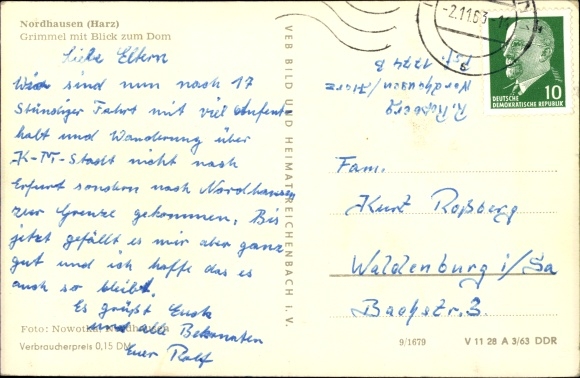 Nordhausen (Harz)
Grimmel mit Blick zum Dom
Liebe Eltern
Wir sind nun nach 17
Stündiger Fahrt mit viel Aufent
halt und Wanderung über
K-M-Stadt nicht nach
Erfurt sondern nach Nordhausen
zur Grenze gekommen. Bis
jetzt gefällt es mir aber ganz
gut und ich hoffe das es
auch so bleibt.
Es grüßt Euch
und alle Bekannten
Euer Rolf
Foto: Nowotka, Nordhausen
Verbraucherpreis 0,15 DM
VEB BILD UND HEIMAT REICHENBACH I. V.
-2.11.63-
R. Roßberg
Nordhausen/Harz
1274 B
10
DEUTSCHE
DEMOKRATISCHE REPUBLIK
Fam.
Kurt Roßberg
Waldenburg i/Sa
Bachstr. 3.
9/1679
V 11 28 A 3/63 DDR